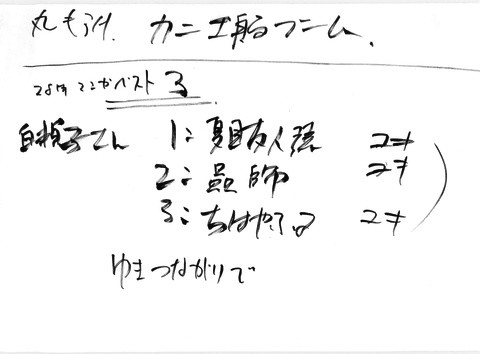 丸もうけ. カニ工船ブーム.
ベスト3
さん 1: 夏目友人帳 ユキ
2: 蟲師 ユキ
3: ちはやふる ユキ
ゆきつながりで